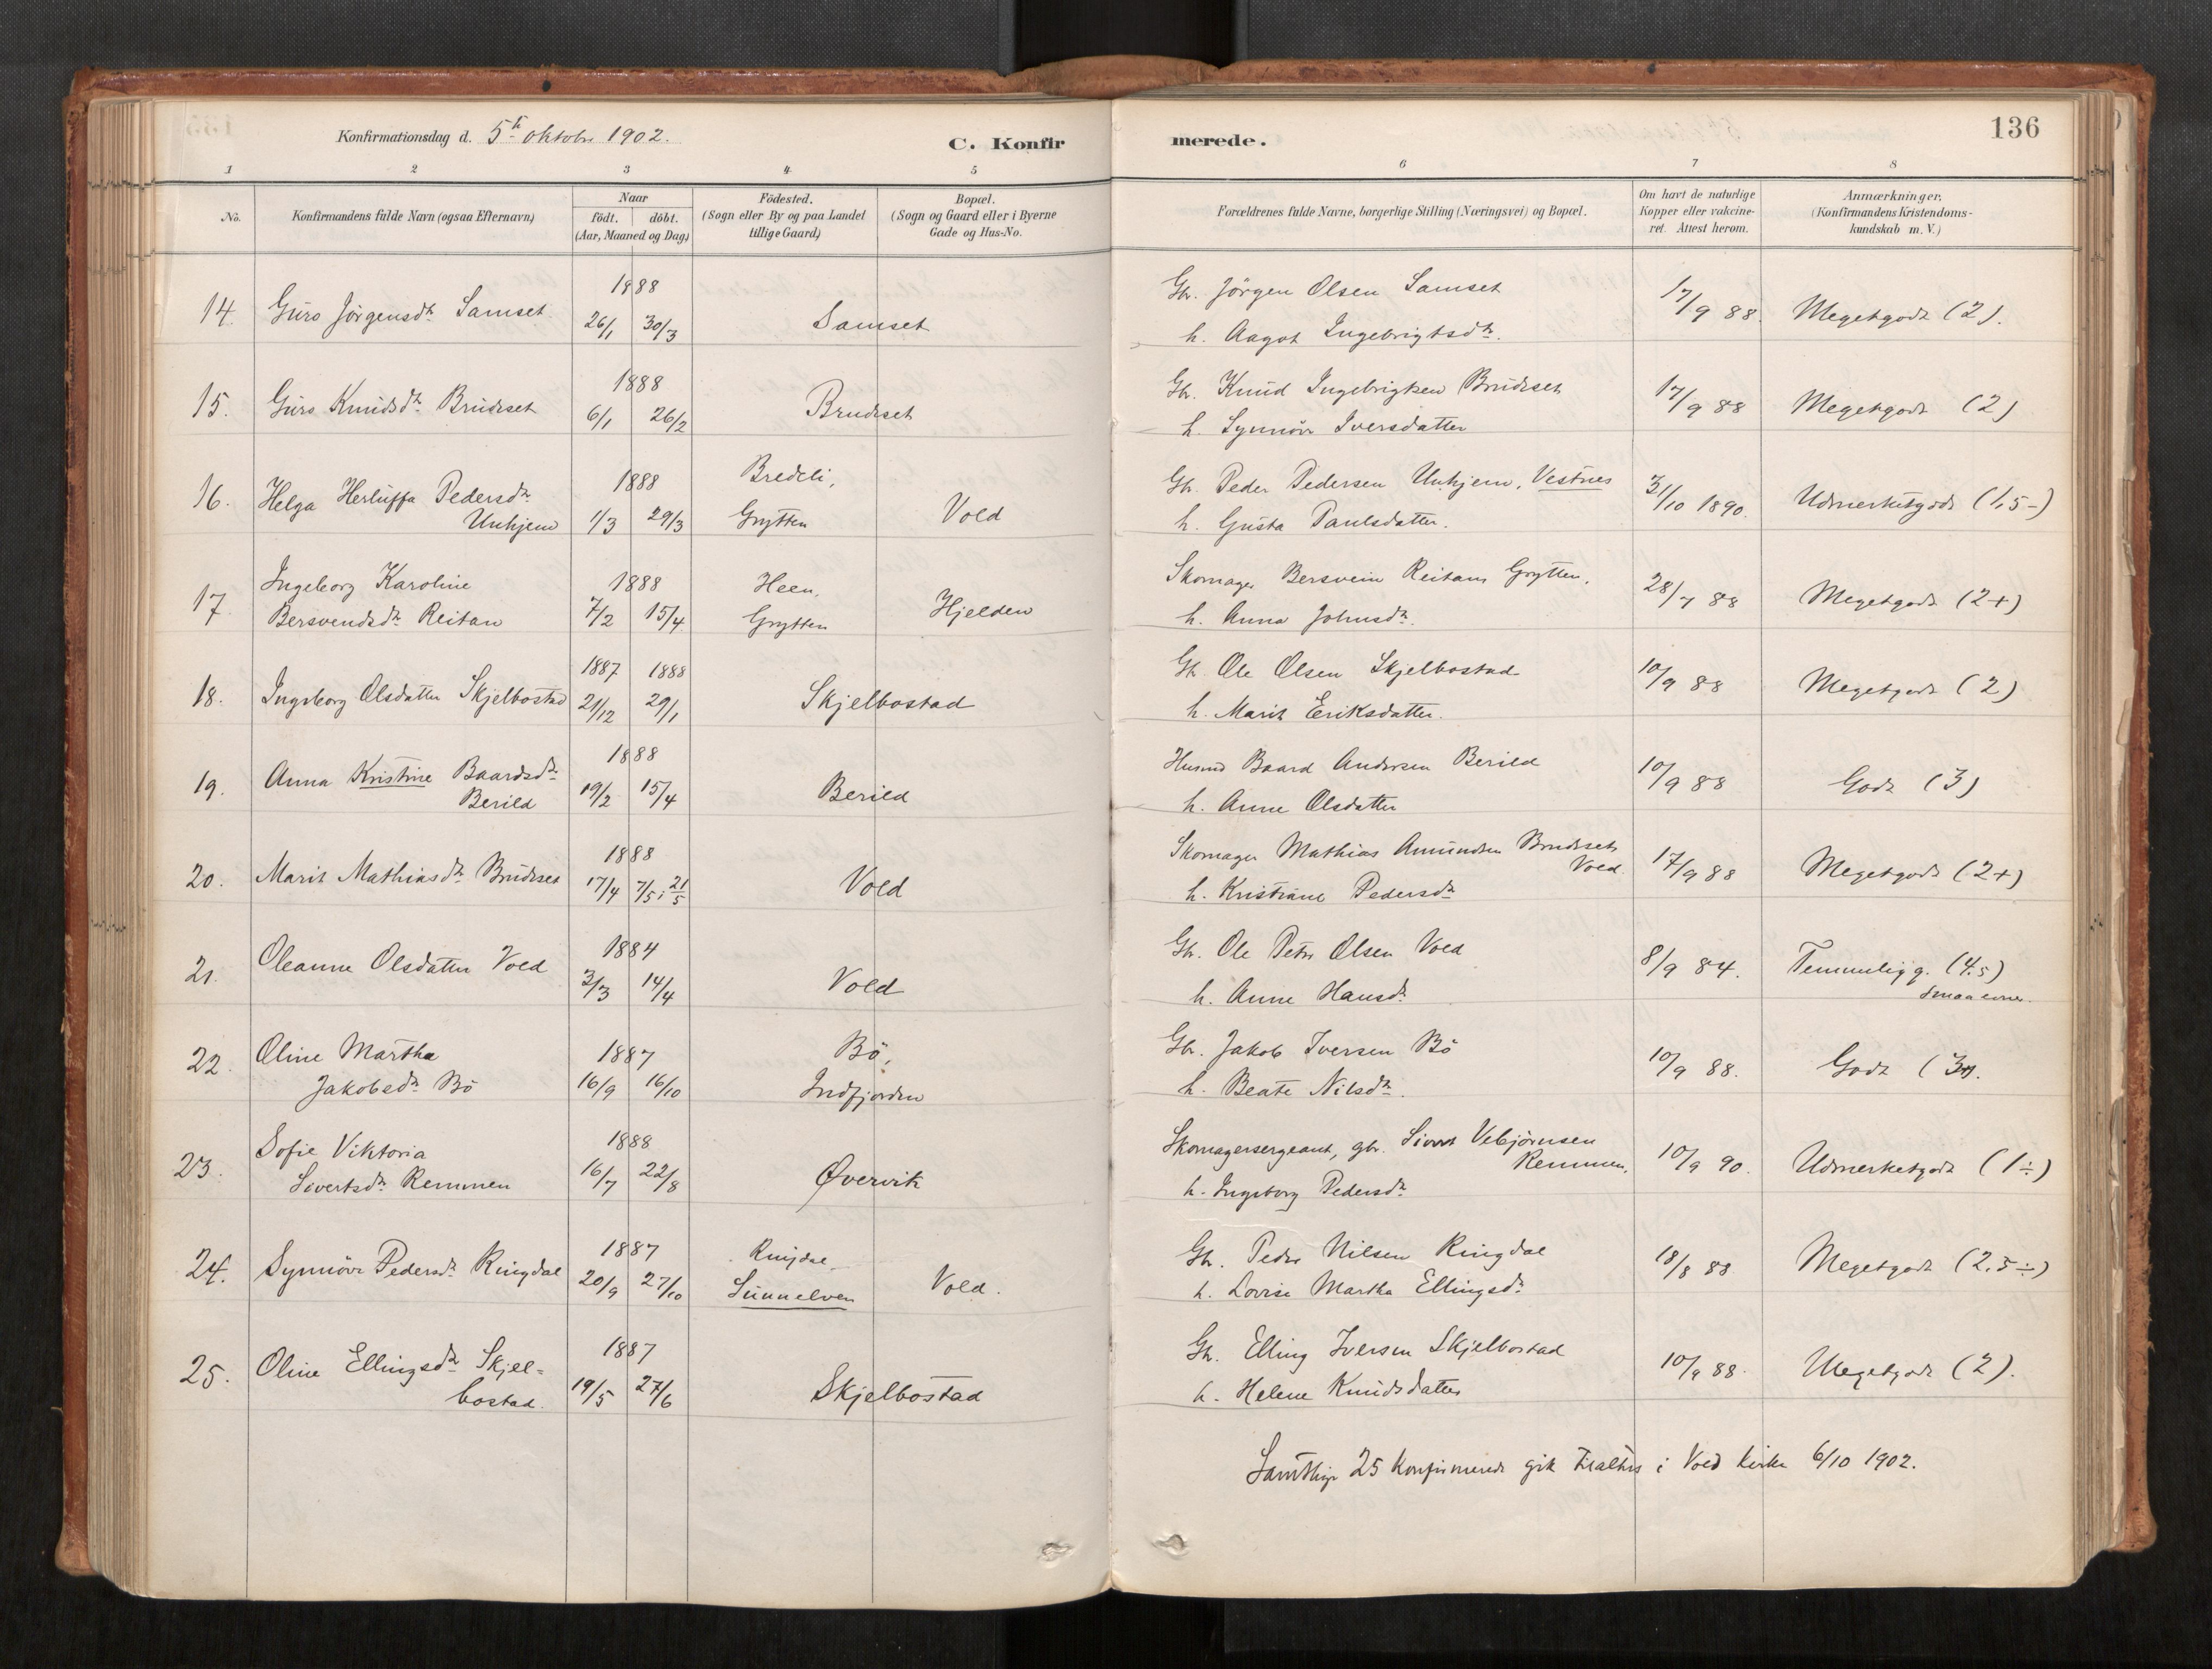 Konfirmationsdag d. 5te Oktober 1902.
C. Konfirmerede.
136
1 2 3 4 5 6 7 8
No.
Konfirmandens fulde Navn (ogsaa Efternavn)
Naar
födt. döbt.
(Aar, Maaned og Dag)
Födested.
(Sogn eller By og paa Landet
tillige Gaard)
Bopæl.
(Sogn og Gaard eller i Byerne
Gade og Hus-No.
Forældrenes fulde Navne, borgerlige Stilling (Næringsvei) og Bopæl.
Om havt de naturlige
Kopper eller vakcine-
ret. Attest herom.
Anmærkninger.
(Konfirmandens Kristendoms-
kundskab m. V.)
14. Guro Jörgensdr. Samset 1888 26/1 30/3 Samset
Gbr. Jörgen Olsen Samset
h. Aagot Ingebrigtsdtr.
17/9 88. Megetgodt (2).
15. Guro Knudsdr. Brudeset 1888 6/1 26/2 Brudeset
Gbr. Knud Ingebrigtsen Brudeset
h. Synnöve Iversdatter
17/9 88 Megetgodt (2)
16. Helga Herluffa Pedersdr.
Unhjem 1888 1/3 29/3
Bredeli,
Grytten Vold
Gbr. Peder Pedersen Unhjem, Vestnes
h. Gusta Paulsdatter.
31/10 1890. Udmerketgodt (1,5-)
17. Ingeborg Karoline
Bersvendsdr. Reitan 1888 7/2 15/4
Heen,
Grytten Hjelden
Skomager Bersvein Reitan, Grytten.
h. Anna Johnsdr.
28/7 88 Megetgodt (2+)
18. Ingeborg Olsdatter Skjelbostad 1887 1888 21/12 29/1 Skjelbostad
Gbr. Ole Olsen Skjelbostad
h. Marit Eriksdatter.
10/9 88 Megetgodt (2)
19. Anna Kristine Baardsdr.
Berild 1888 19/2 15/4 Berild
Husmd Baard Andersen Berild
h. Anne Olsdatter
10/9 88 Godt (3)
20. Marit Mathiasdr. Brudeset 1888 17/4 7/5; 21/5 Vold
Skomager Mathias Amundsen Brudeset
Vold.
h. Kristiane Pedersdr
17/9 88 Megetgodt (2+)
21. Oleanne Olsdatter Vold 1884 3/3 14/4 Vold
Gbr. Ole Peter Olsen Vold
h. Anne Hansdr.
8/9 84. Temmelig g. (4.5)
Smaa evner.
22. Oline Martha
Jakobsdr. Bö 1887 16/9 16/10
Bö,
Indfjorden
Gbr. Jakob Iversen Bö
h. Beate Nilsdr.
10/9 88. Godt (3+).
23. Sofie Viktoria
Sivertsdr. Remmen 1888 16/7 22/8 Øvervik
Skomagersergeant, gbr. Sivert Vebjörnsen
Remmen.
h. Ingeborg Pedersdr.
10/9 90. Udmerketgodt (1÷)
24. Synnöve Pedersdr. Ringdal 1887 20/9 27/10
Ringdal,
Sunnelven Vold.
Gbr. Peder Nilsen Ringdal
h. Lovise Martha Ellingsdr.
18/8 88 Megetgodt (2,5÷)
25. Oline Ellingsdr. Skjel-
bostad. 1887 19/5 27/6 Skjelbostad
Gbr. Elling Iversen Skjelbostad
h. Helene Knudsdatter
10/9 88. Megetgodt (2).
Samtlige 25 konfirmerede gik til alters i Vold kirke 6/10 1902.